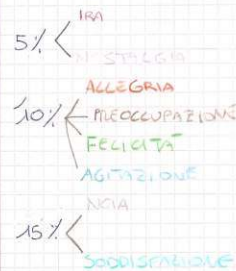 IRA
5%
N STALGIA
ALLEGRIA
10%
PREOCCUPAZIONE
FELICITÀ
AGITAZIONE
NOIA
15%
SODDISFAZIONE